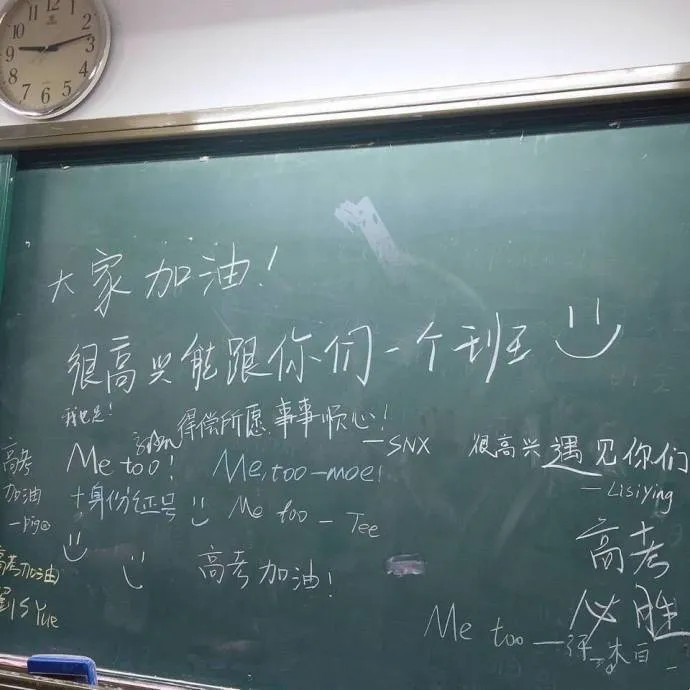 12
1
2
3
4
5
6
7
8
9
10
11
大家加油!
很高兴能跟你们一个班
我也是!
得偿所愿 事事顺心!
—SNX
很高兴遇见你们
—Lisiying
高考
加油
Me too!
Me, too—moe!
+身份证号
Me too — Tee
高考加油
高考加油!
Yue
高考
必胜
Me too —